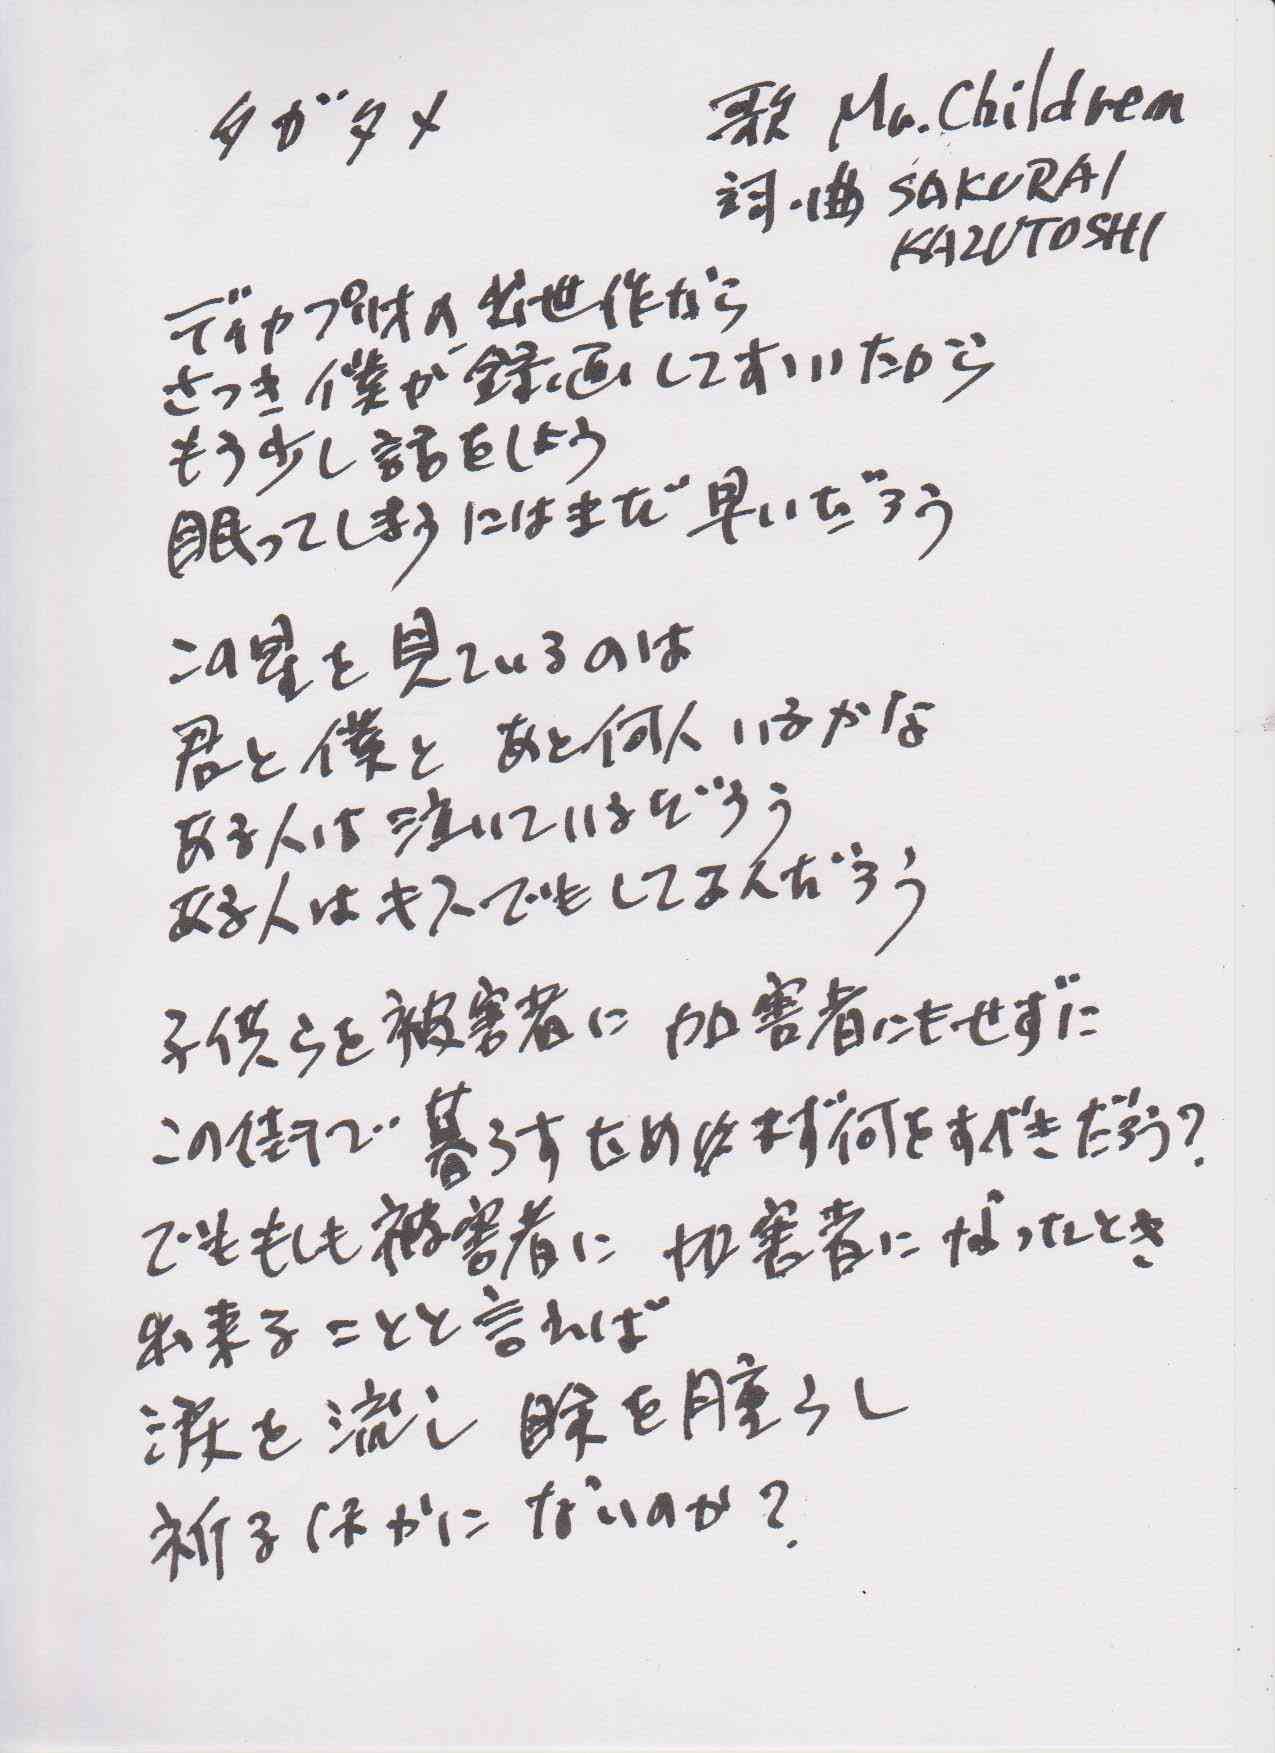 タガタメ
歌 Mr.Children
詞・曲 SAKURAI
KAZUTOSHI
ディカプリオの出世作なら
さっき僕が録画しておいたから
もう少し話をしよう
眠ってしまうにはまだ早いだろう
この星を見ているのは
君と僕と あと何人いるかな
ある人は泣いているだろう
ある人はキスでもしてるんだろう
子供らを被害者に 加害者にもせずに
この街で暮らすため まず何をすべきだろう?
でももしも被害者に 加害者になったとき
出来ることと言えば
涙を流し 瞼を腫らし
祈るほかにないのか?